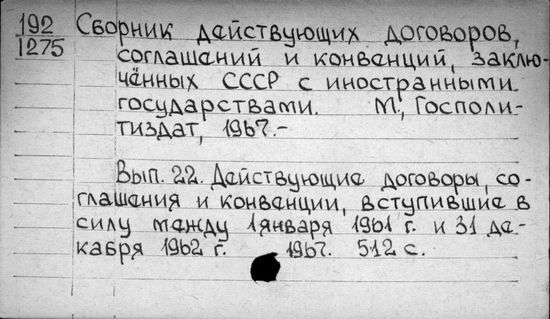 192
1275
Сборник действующих договоров,
соглашений и конвенций, заклю-
чённых СССР с иностранными
государствами. М., Госполи-
тиздат, 1967.-
Вып. 22. Действующие договоры, со-
глашения и конвенции, вступившие в
силу между 1 января 1961 г. и 31 де-
кабря 1962 г. 1967. 512 с.